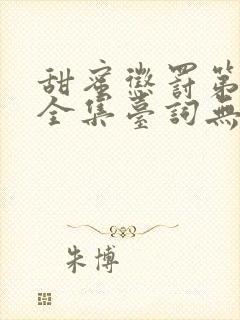 甜蜜懲罰第
全集臺詞無
朱博